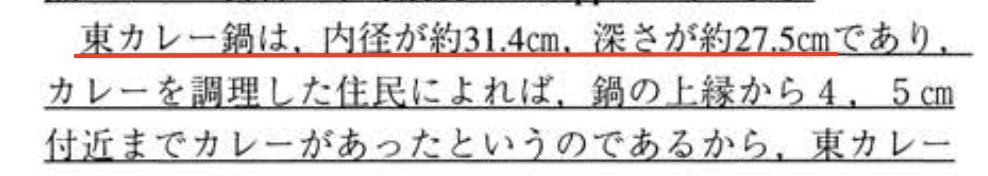 東カレー鍋は，内径が約31.4cm，深さが約27.5cmであり，
カレーを調理した住民によれば，鍋の上縁から４，５cm
付近までカレーがあったというのであるから，東カレー